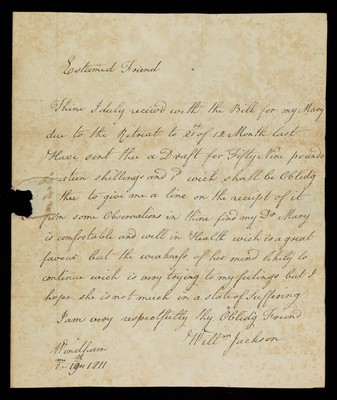 Esteemed Friend
Thine I duly receivd with the Bill for my Mary
due to the Retreat to 21st of 12 Month last
Have sent thee a Draft for Fifty Nine pounds
shillings and wich shall be Oblidg
thee to give me a line on the receipt of it
from some Observations in thine find my Dr Mary
is comfortable and well in Health wich is a great
favour but the weakness of her mind likely to
continue wich is very trying to my feelings but I
hope she is not much in a state of Suffering
I am very respectfully thy Oblidg Friend
Willm Jackson
1811